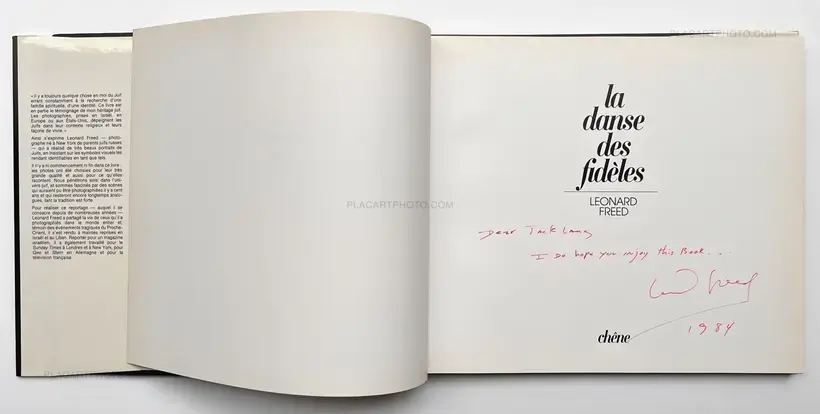 « Il y a toujours quelque chose en moi du Juif
errant constamment à la recherche d'une
famille spirituelle, d'une identité. Ce livre est
en partie le témoignage de mon héritage juif.
Les photographies, prises en Israël, en
Europe ou aux États-Unis, dépeignent les
Juifs dans leur contexte religieux et leurs
façons de vivre. »
Ainsi s'exprime Leonard Freed — photo-
graphe né à New York de parents juifs russes
— qui a réalisé de très beaux portraits de
Juifs, en insistant sur les symboles visuels les
rendant identifiables en tant que tels.
Il n'y a ni commencement ni fin dans ce livre :
les photos ont été choisies pour leur très
grande qualité et aussi pour ce qu'elles
racontent. Nous pénétrons ainsi dans l'uni-
vers juif, et sommes fascinés par des scènes
qui auraient pu être photographiées il y a cent
ans et qui resteront encore longtemps analo-
gues, tant la tradition est forte.
Pour réaliser ce reportage — auquel il se
consacre depuis de nombreuses années —
Leonard Freed a partagé la vie de ceux qu'il a
photographiés dans le monde entier et,
témoin des événements tragiques du Proche-
Orient, il s'est rendu à maintes reprises en
Israël et au Liban. Reporter pour un magazine
israélien, il a également travaillé pour le
Sunday Times à Londres et à New York, pour
Geo et Stern en Allemagne et pour la
télévision française.
la
danse
des
fidèles
LEONARD
FREED
Dear Jack Lang
I do hope you enjoy this Book...
Leonard Freed
1984
chêne
PLACARTPHOTO.COM
PLACARTPHOTO.COM
PLACARTPHOTO.COM